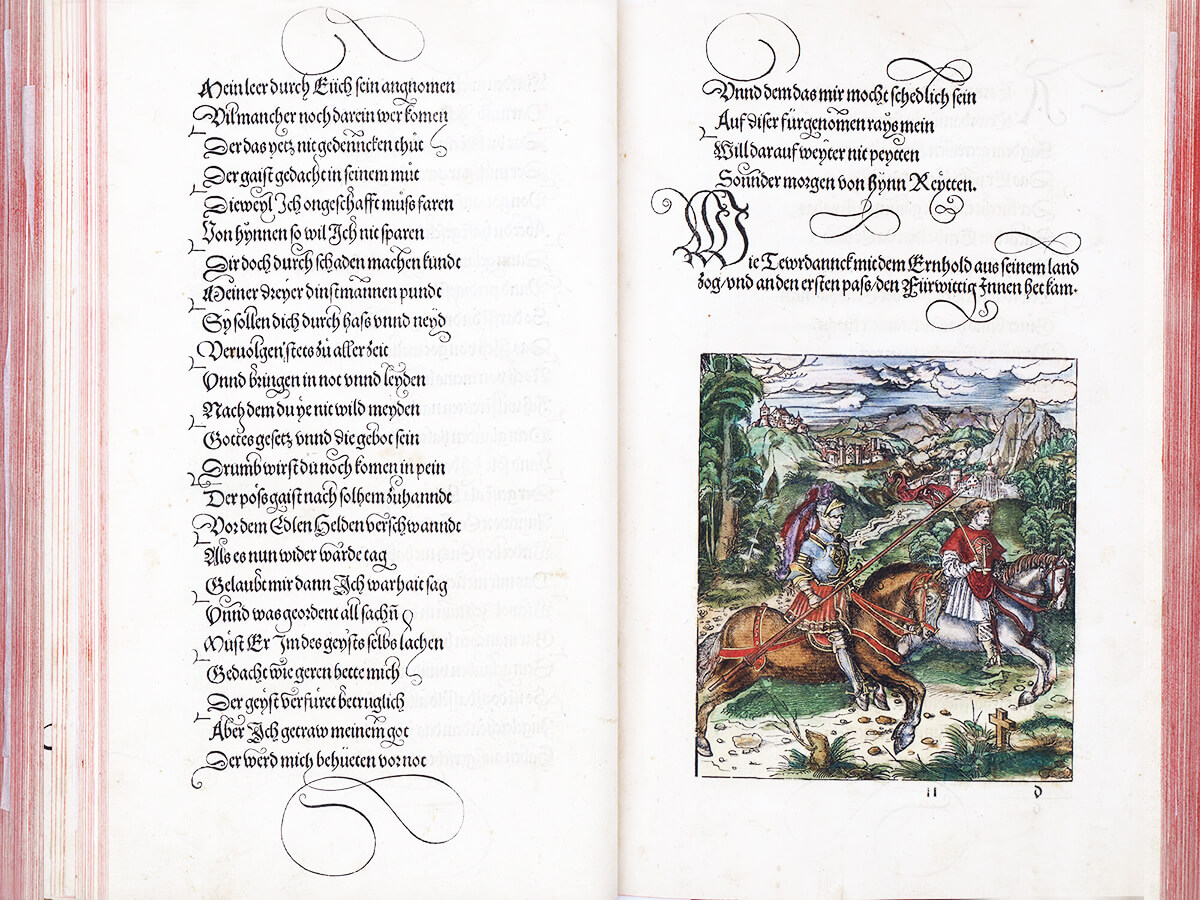 Mein leer durch Eüch sein angnomen
Vil mancher noch darein wer komen
Der das yetz nit gedenncken thüt
Der gaist gedacht in seinem müt
Dieweyl Ich ongeschafft müß faren
Von hynnen so wil Ich nit sparen
Dir doch durch schaden machen kundt
Meiner dreyer dinstmannen pundt
Sy sollen dich durch hass vnnd neyd
Veruolgen stets zu aller zeit
Vnnd bringen in not vnnd leyden
Nach dem du ye nit wild meyden
Gottes gesetz vnnd die gebot sein
Drumb wirst dü noch komen in pein
Der pöß gaist nach solhem zuhanndt
Vor dem Edlen Helden verschwanndt
Als es nun wider warde tag
Gelaubt mir dann Ich warhait sag
Vnnd was geordent all sachñ
Müst Er Im des geysts selbs lachen
Gedacht wie geren hette mich
Der geyst verfüret betruglich
Aber Ich getraw meinem got
Der werd mich behüeten vor not
Vnnd dem das mir mocht schedlich sein
Auf diser fürgenomen rays mein
Will darauf weyter nit peytten
Sonnder morgen von hynn Reytten.
Wie Tewrdannck mit dem Ernhold aus seinem land
zog/vnd an den ersten pass/den Fürwittig Innen het kam.
11 d